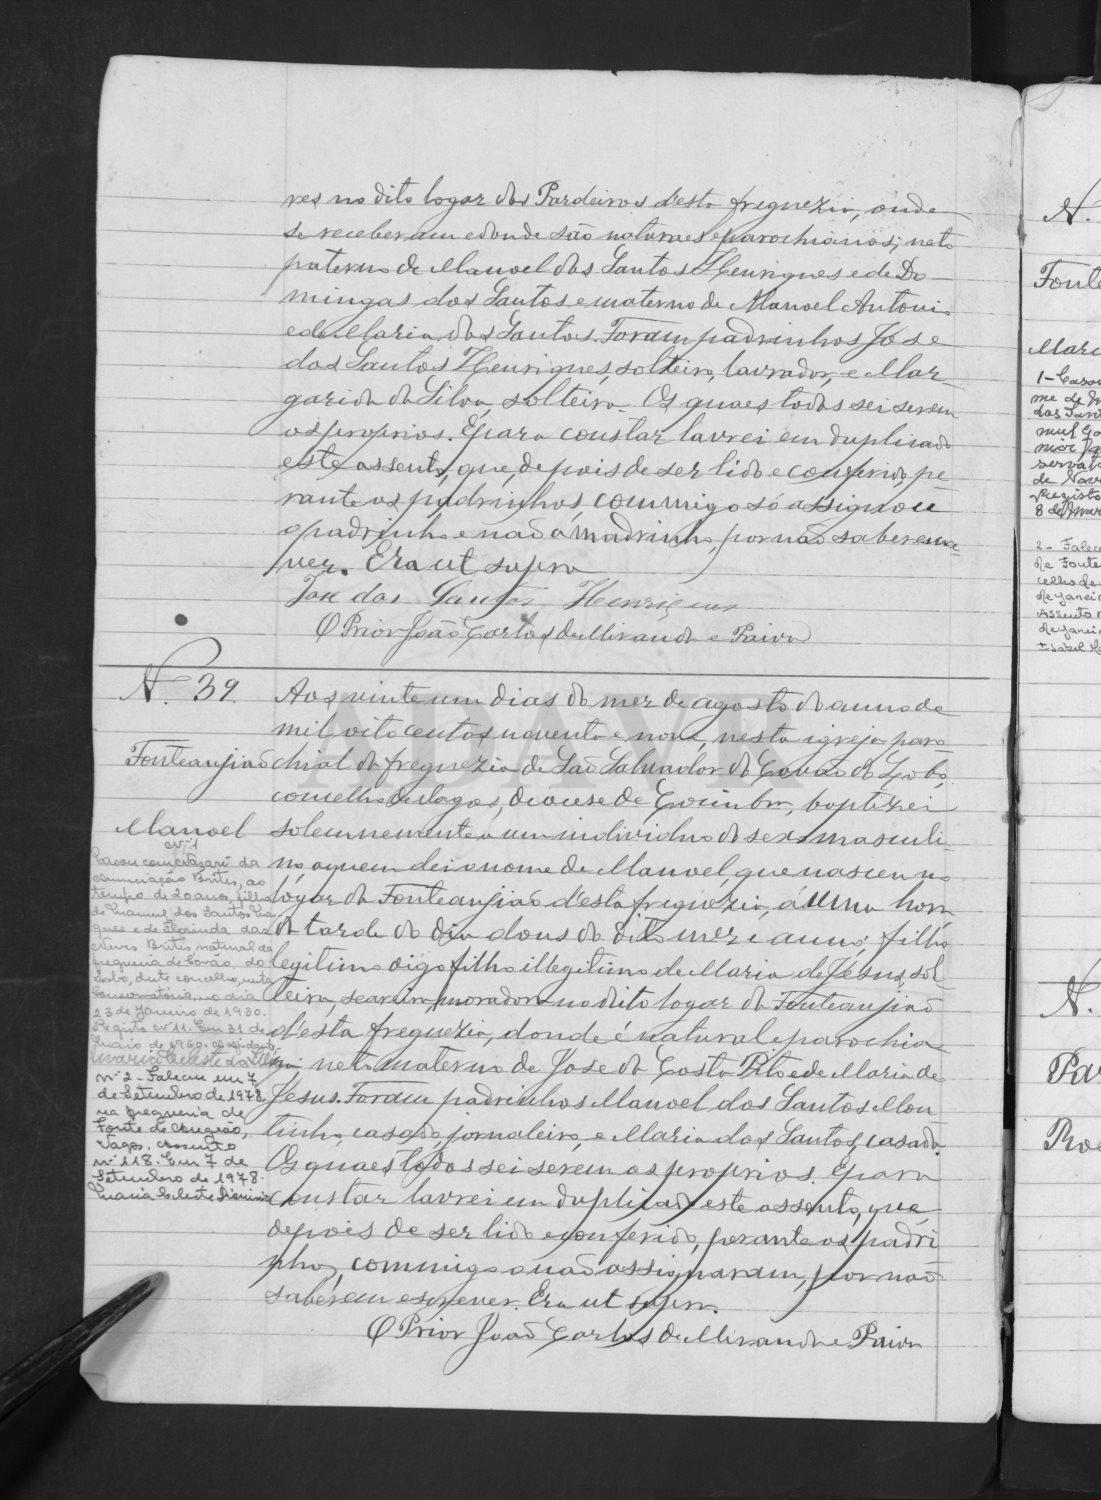 res no dito logar dos Pardeiros d'esta freguezia, onde
se receberam e donde são naturaes e parochianos; neto
paterno de Manoel dos Santos Henriques e de Do-
mingas dos Santos e materno de Manoel Antonio
e de Maria dos Santos. Foram padrinhos José
dos Santos Henriques, solteiro, lavrador, e Mar-
garida da Silva, solteira. Os quaes todos sei serem
os proprios. E para constar lavrei em duplicado
este assento, que, depois de ser lido e conferido pe-
rante os padrinhos, commigo só assignou
o padrinho e não a madrinha, por não saber escre-
ver. Era ut supra
José dos Santos Henriques
O Prior João Carlos de Miranda e Paiva
N.º 39.
Fonteanjião
Manoel
Aos vinte um dias do mez de agosto do anno de
mil oito centos noventa e nove, nesta igreja paro-
chial da freguezia de São Salvador do Covão do Lobo,
concelho de Vagos, diocese de Coimbra, baptizei
solemnemente a um individuo do sexo masculi-
no, a quem dei o nome de Manoel, que nasceu no
logar da Fonteanjião d'esta freguezia, á uma hora
da tarde do dia dous do dito mez e anno: filho
legitimo digo filho illegitimo de Maria de Jesus, sol-
teira, seareira, moradora no dito logar da Fonteanjião
d'esta freguezia, donde é natural e parochia-
na; neto materno de José da Costa Pito e de Maria de
Jesus. Foram padrinhos Manoel dos Santos Mou-
tinho, casado, jornaleiro, e Maria dos Santos, casada.
Os quaes todos sei serem os proprios. E para
constar lavrei em duplicado este assento, que,
depois de ser lido e conferido, perante os padri-
nhos, commigo o não assignaram, por não
saberem escrever. Era ut supra.
O Prior João Carlos de Miranda e Paiva
nº 1
Casou com Cezaré da
Anunciação Brites, ao
tempo de 20 anos, filha
de Manuel dos Santos
e de das
Neves Brites, natural da
freguesia de Covão do
Lobo, deste concelho, nesta
Conservatória, no dia
23 de Janeiro de 1930.
Registo nº 11. Em 31 de
Maio de 1960.
Maria Celeste
nº 2 - Faleceu em 7
de Setembro de 1978
na freguesia de
Fonte de Angeão,
Vagos. Assento
nº 118. Em 7 de
Setembro de 1978.
Maria Celeste
ADAVR
N.
Fonte
1 - Casou
2 - Falec
de Fonte
celho de
de Janei
Assento n
de Janei
N.
Par